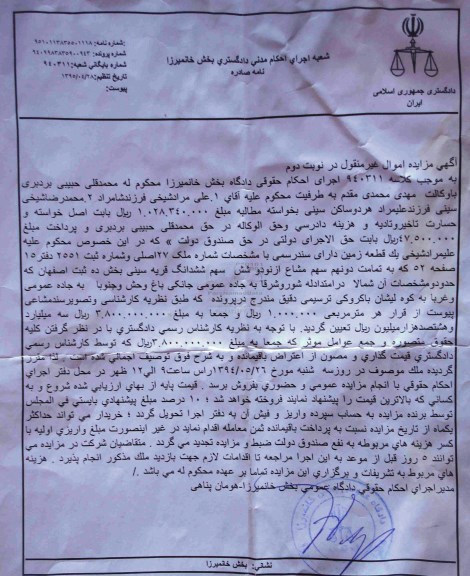 شماره نامه: ۹۵۱۰۱۱۳۸۳۵۵۰۰۱۱۱۸
شماره پرونده: ۹۴۰۹۹۸۳۸۳۵۹۰۰۹۴۳
شماره بایگانی شعبه: ۹۴۰۳۱۱
تاریخ تنظیم: ۱۳۹۵/۰۴/۲۸
پیوست:
شعبه اجرای احکام مدنی دادگستری بخش خانمیرزا
نامه صادره
دادگستری جمهوری اسلامی
ایران
آگهی مزایده اموال غیرمنقول در نوبت دوم
به موجب کلاسه ۹۴۰۳۱۱ اجرای احکام حقوقی دادگاه بخش خانمیرزا محکوم له محمدقلی حبیبی بردبری
باوکالت مهدی محمدی مقدم به طرفیت محکوم علیه آقای ۱.علی مرادشیخی فرزندشامراد ۲.محمدرضاشیخی
سینی فرزندعلیمراد هردوساکن سینی بخواسته مطالبه مبلغ ۱,۰۲۸,۳۴۰,۰۰۰ ریال بابت اصل خواسته و
خسارت تاخیروتادیه و هزینه دادرسی وحق الوکاله در حق محمدقلی حبیبی بردبری و پرداخت مبلغ
۴۷,۵۰۰,۰۰۰ریال بابت حق الاجرای دولتی در حق صندوق دولت » که در این خصوص محکوم علیه
علیمرادشیخی یك قطعه زمین دارای سندرسمی با مشخصات شماره ملك ۲۷اصلی وشماره ثبت ۲۵۵۱ دفتر۱۵
صفحه ۵۲ که به تمامت دونهم سهم مشاع ازنودو شش سهم ششدانگ قریه سینی بخش ده ثبت اصفهان که
حدودومشخصات آن شمالا درامتدادله شوروشرقا به جاده عمومی جانکی باغ وحش وجنوبا به جاده عمومی
وغربا به کوره لیشان باکروکی ترسیمی دقیق مندرج درپرونده که طبق نظریه کارشناسی وتصویرسندمشاعی
پیوست از قرار هر مترمربعی ۱,۰۰۰,۰۰۰ ریال و جمعا به مبلغ ۳,۸۰۰,۰۰۰,۰۰۰ ریال سه میلیارد
وهشتصدهزارمیلیون ریال تعیین گردید. با توجه به نظریه کارشناس رسمی دادگستری با در نظر گرفتن کلیه
حقوق متصوره و جمع عوامل موثر که جمعا به مبلغ ۳,۸۰۰,۰۰۰,۰۰۰ریال که توسط کارشناس رسمی
دادگستری قیمت گذاری و مصون از اعتراض باقیمانده و به شرح فوق توصیف اجمالی شده است . لذا مقرر
گردیده ملك موصوف در روزسه شنبه مورخ ۱۳۹۴/۰۵/۲۶راس ساعت۹ الی۱۲ ظهر در محل دفتر اجرای
احکام حقوقی با انجام مزایده عمومی و حضوری بفروش برسد . قیمت پایه از بهای ارزیابی شده شروع و به
کسانی که بالاترین قیمت را پیشنهاد نمایند فروخته خواهد شد ؛ ۱۰ درصد مبلغ پیشنهادی بایستی فی المجلس
توسط برنده مزایده به حساب سپرده واریز و فیش آن به دفتر اجرا تحویل گردد ؛ خریدار می تواند حداکثر
یکماه از تاریخ مزایده نسبت به پرداخت باقیمانده ثمن معامله اقدام نماید در غیر اینصورت مبلغ واریزی اولیه با
کسر هزینه های مربوطه به نفع صندوق دولت ضبط و مزایده تجدید می گردد . متقاضیان شرکت در مزایده می
توانند ۵ روز قبل از موعد به این اجرا مراجعه تا اقدامات لازم جهت بازدید ملك مذکور انجام پذیرد . هزینه
های مربوط به تشریفات و برگزاری این مزایده تماما بر عهده محکوم له می باشد ./
مدیراجرای احکام حقوقی دادگاه عمومی بخش خانمیرزا-هومان پناهی
نشانی: بخش خانمیرزا